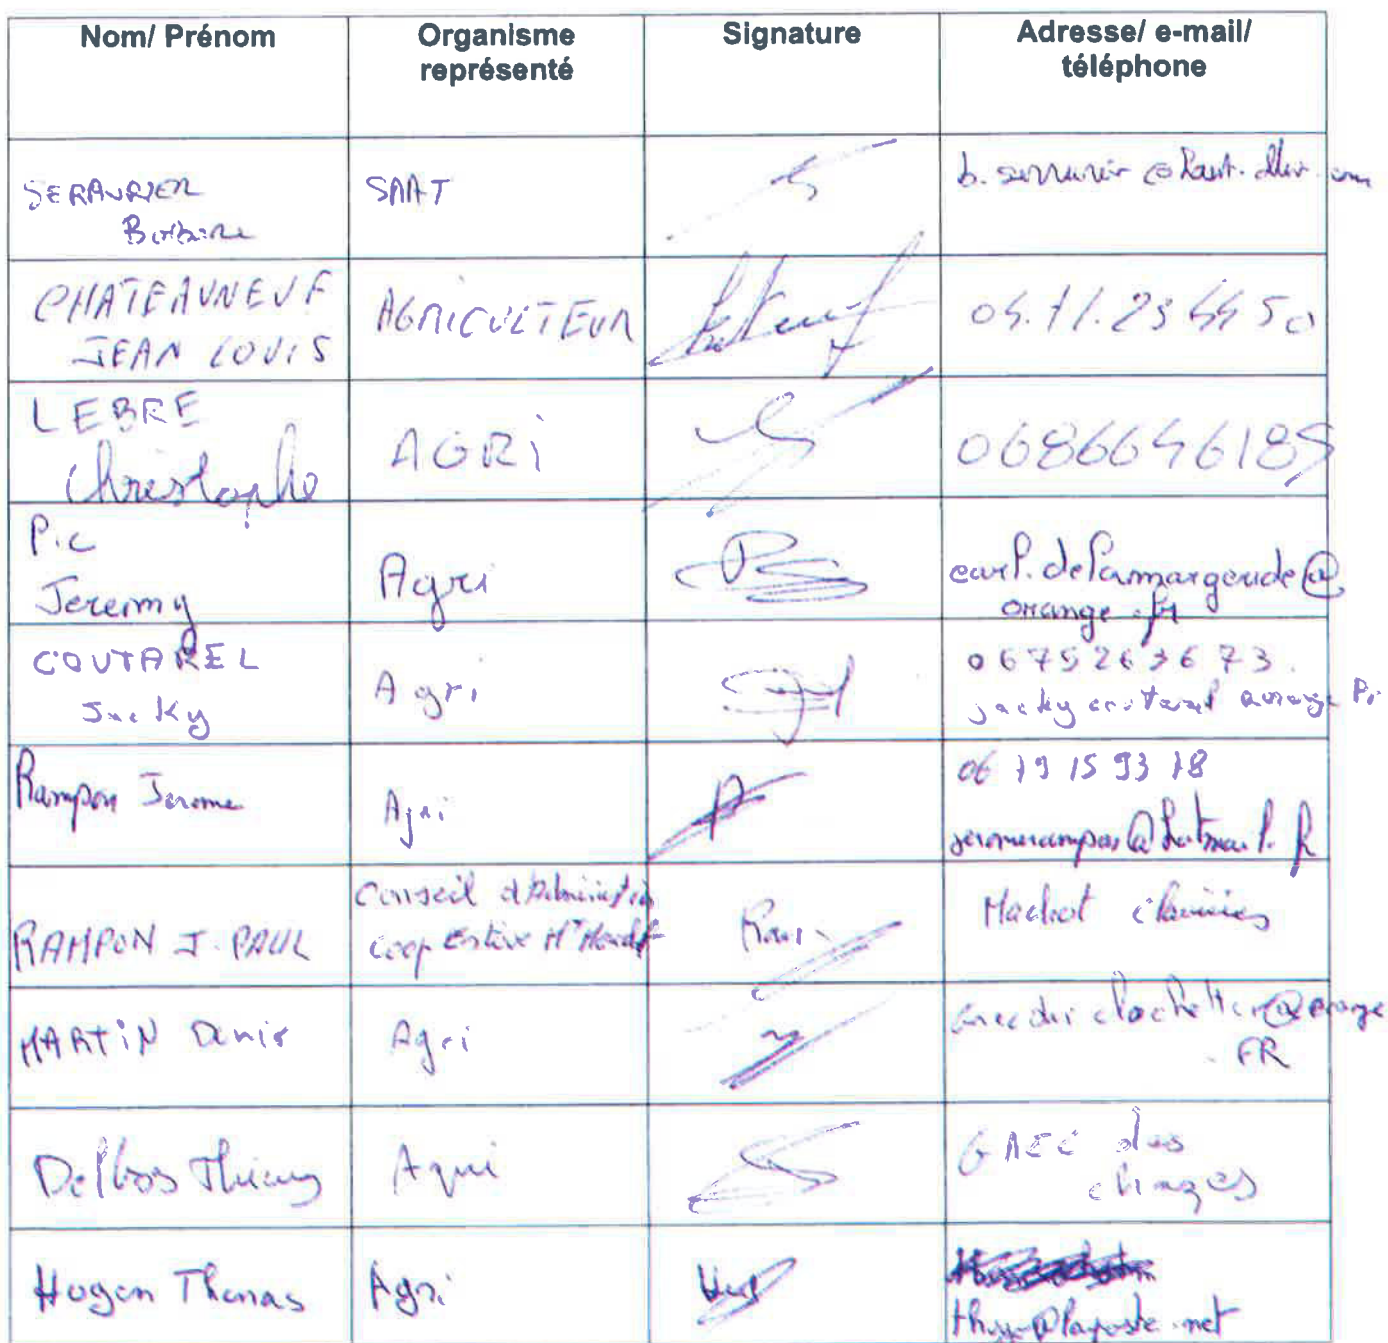 Nom/ Prénom
Organisme
représenté
Signature
Adresse/ e-mail/
téléphone
SERRURIER
Barbara
SAAT
CHATEAUNEUF
JEAN LOUIS
AGRICULTEUR
04.71.23 44 50
LEBRE
Christophe
AGRi
0686646189
Pic
Jeremy
Agri
earl.delamargeride@
orange.fr
COUTAREL
Jacky
Agri
0675263673.
jacky coutarel orange Fr
Rampon Jerome
Agri
06 79 15 93 78
jeromerampon@hotmail.fr
RAMPON J. PAUL
Conseil d'Administration
Coop Estive
MARTiN Denis
Agri
@orange
.FR
Delbos Thierry
Agri
GAEC des
chazes
Hugon Thomas
Agri
@laposte.net